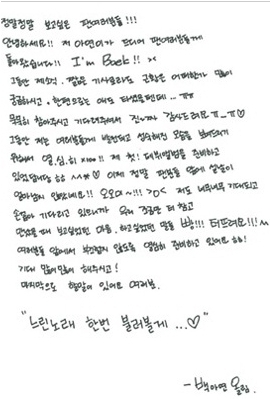 정말정말 보고싶은 팬여러분들!!!
안녕하세요!! 저 아연이가 드디어 팬여러분들께
돌아왔습니다!! I'm Back!! ><
그동안 제소식. 짧은 기사들라도 근황은 어떠한가 많이
궁금하시고. 한편으로는 애도 타셨을텐데... ㅠㅠ
묵묵히 참아주시고 기다려주셔서 진~짜 감사드려요ㅠ_ㅠ♡
그동안 저는 여러분들께 발전되고 성숙해진 모습을 보여드리기
위해서 열.심.히 지내!! 제 첫! 데뷔앨범을 준비하고
있었답니다 하하 ^^ 이제 정말 팬분들 앞에 설날이
얼마남지 않았네요!! 오오미~!!! >0< 저도 너무너무 기대되고
손꼽아 기다리고 있으니까 우리 조금만 더 참고
만났을 때 보고싶었던 마음. 하고싶었던 말들 빵!!! 터뜨려요!!!~
여러분들 앞에서 부끄럽지 않도록 열심히 준비하고 있어요 하하!
기대 많이많이 해주시고!
마지막으로 할말이 있어요 여러분.
"느린노래 한번 불러볼게...♡"
- 백아연 올림.